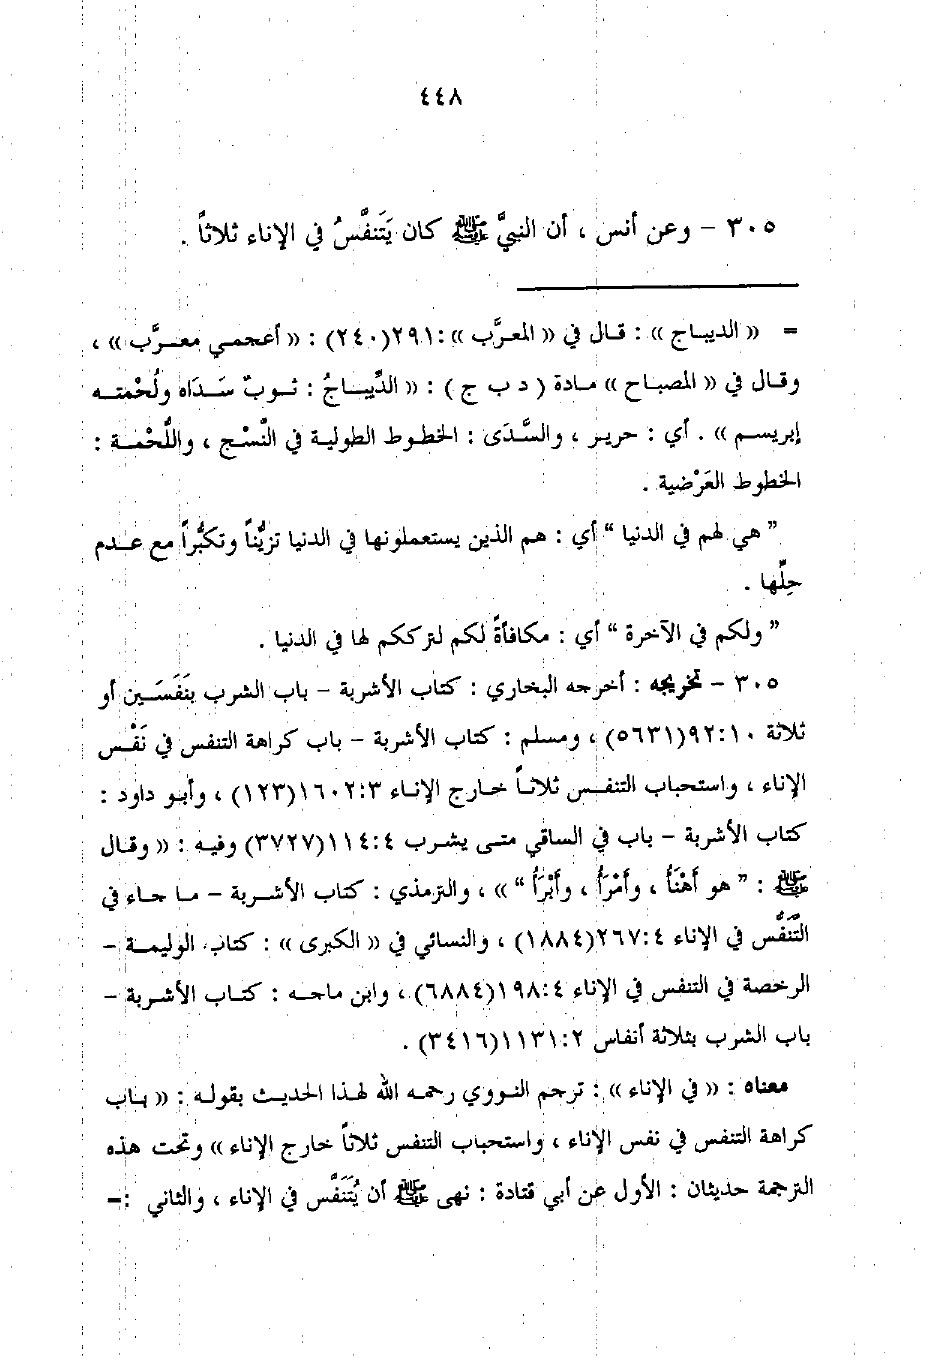 ٤٤٨
٣٠٥ – وعن أنس ، أن النبيَّ ﷺ كان يَتَنفَّسُ في الإناء ثلاثاً .
= « الديباج » : قال في « المعرَّب »:٢٩١(٢٤٠) : « أعجمي معرَّب » ،
وقال في « المصباح » مادة ( د ب ج ) : « الدِّيباجُ : ثوبٌ سَدَاه ولُحْمته
إبريسم » . أي : حرير ، والسَّدَى : الخطوط الطولية في النَّسْج ، واللُّحْمة :
الخطوط العَرْضية .
” هي لهم في الدنيا “ أي : هم الذين يستعملونها في الدنيا تزيُّناً وتكبُّراً مع عدم
حِلِّها .
” ولكم في الآخرة “ أي : مكافأةً لكم لترككم لها في الدنيا .
٣٠٥ – تخريجه : أخرجه البخاري : كتاب الأشربة – باب الشرب بنَفَسَين أو
ثلاثة ٩٢:١٠(٥٦٣١) ، ومسلم : كتاب الأشربة – باب كراهة التنفس في نَفْس
الإناء ، واستحباب التنفس ثلاثاً خارج الإناء ١٦٠٢:٣(١٢٣) ، وأبو داود :
كتاب الأشربة – باب في الساقي متى يشرب ١١٤:٤(٣٧٢٧) وفيه : « وقال
ﷺ : ” هو أَهْنَأُ ، وأَمْرَأُ ، وأَبْرَأُ “ » ، والترمذي : كتاب الأشربة – ما جاء في
التَّنَفُّس في الإناء ٢٦٧:٤(١٨٨٤) ، والنسائي في « الكبرى » : كتاب الوليمة –
الرخصة في التنفس في الإناء ١٩٨:٤(٦٨٨٤) ، وابن ماجه : كتاب الأشربة –
باب الشرب بثلاثة أنفاس ١١٣١:٢(٣٤١٦) .
معناه : « في الإناء » : ترجم النووي رحمه الله لهذا الحديث بقوله : « باب
كراهة التنفس في نفس الإناء ، واستحباب التنفس ثلاثاً خارج الإناء » وتحت هذه
الترجمة حديثان : الأول عن أبي قتادة : نهى ﷺ أن يُتَنَفَّس في الإناء ، والثاني :=